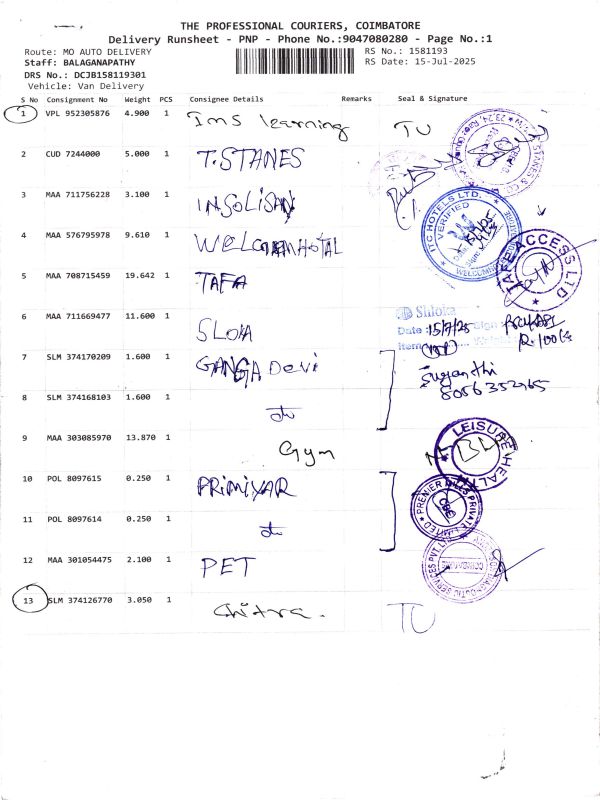 THE PROFESSIONAL COURIERS, COIMBATORE
Delivery Runsheet - PNP - Phone No.:9047080280 - Page No.:1
Route: MO AUTO DELIVERY
Staff: BALAGANAPATHY
DRS No.: DCJB158119301
Vehicle: Van Delivery
RS No.: 1581193
RS Date: 15-Jul-2025
S No Consignment No Weight PCS Consignee Details Remarks Seal & Signature
1 VPL 952305876 4.900 1 Ims learning TU
2 CUD 7244000 5.000 1 T.STANES
3 MAA 711756228 3.100 1 INSOLISAN
ITC HOTELS LTD.
VERIFIED
4 MAA 576795978 9.610 1 WELCOMHOTAL
5 MAA 708715459 19.642 1 TAFA
TAFE ACCESS LTD
6 MAA 711669477 11.600 1 SLOKA
Shloka
Date : 15/7/25 Sign
7 SLM 374170209 1.600 1 GANGA Devi
Suganthi
8056352765
8 SLM 374168103 1.600 1 do
9 MAA 303085970 13.870 1 Gym
LEISURE HEALTH
10 POL 8097615 0.250 1 PRIMIYAR
PREMIER MILLS PRIVATE LIMITED
CBE
11 POL 8097614 0.250 1 do
12 MAA 301054475 2.100 1 PET
COIMBATORE
13 SLM 374126770 3.050 1 Chitra. TU